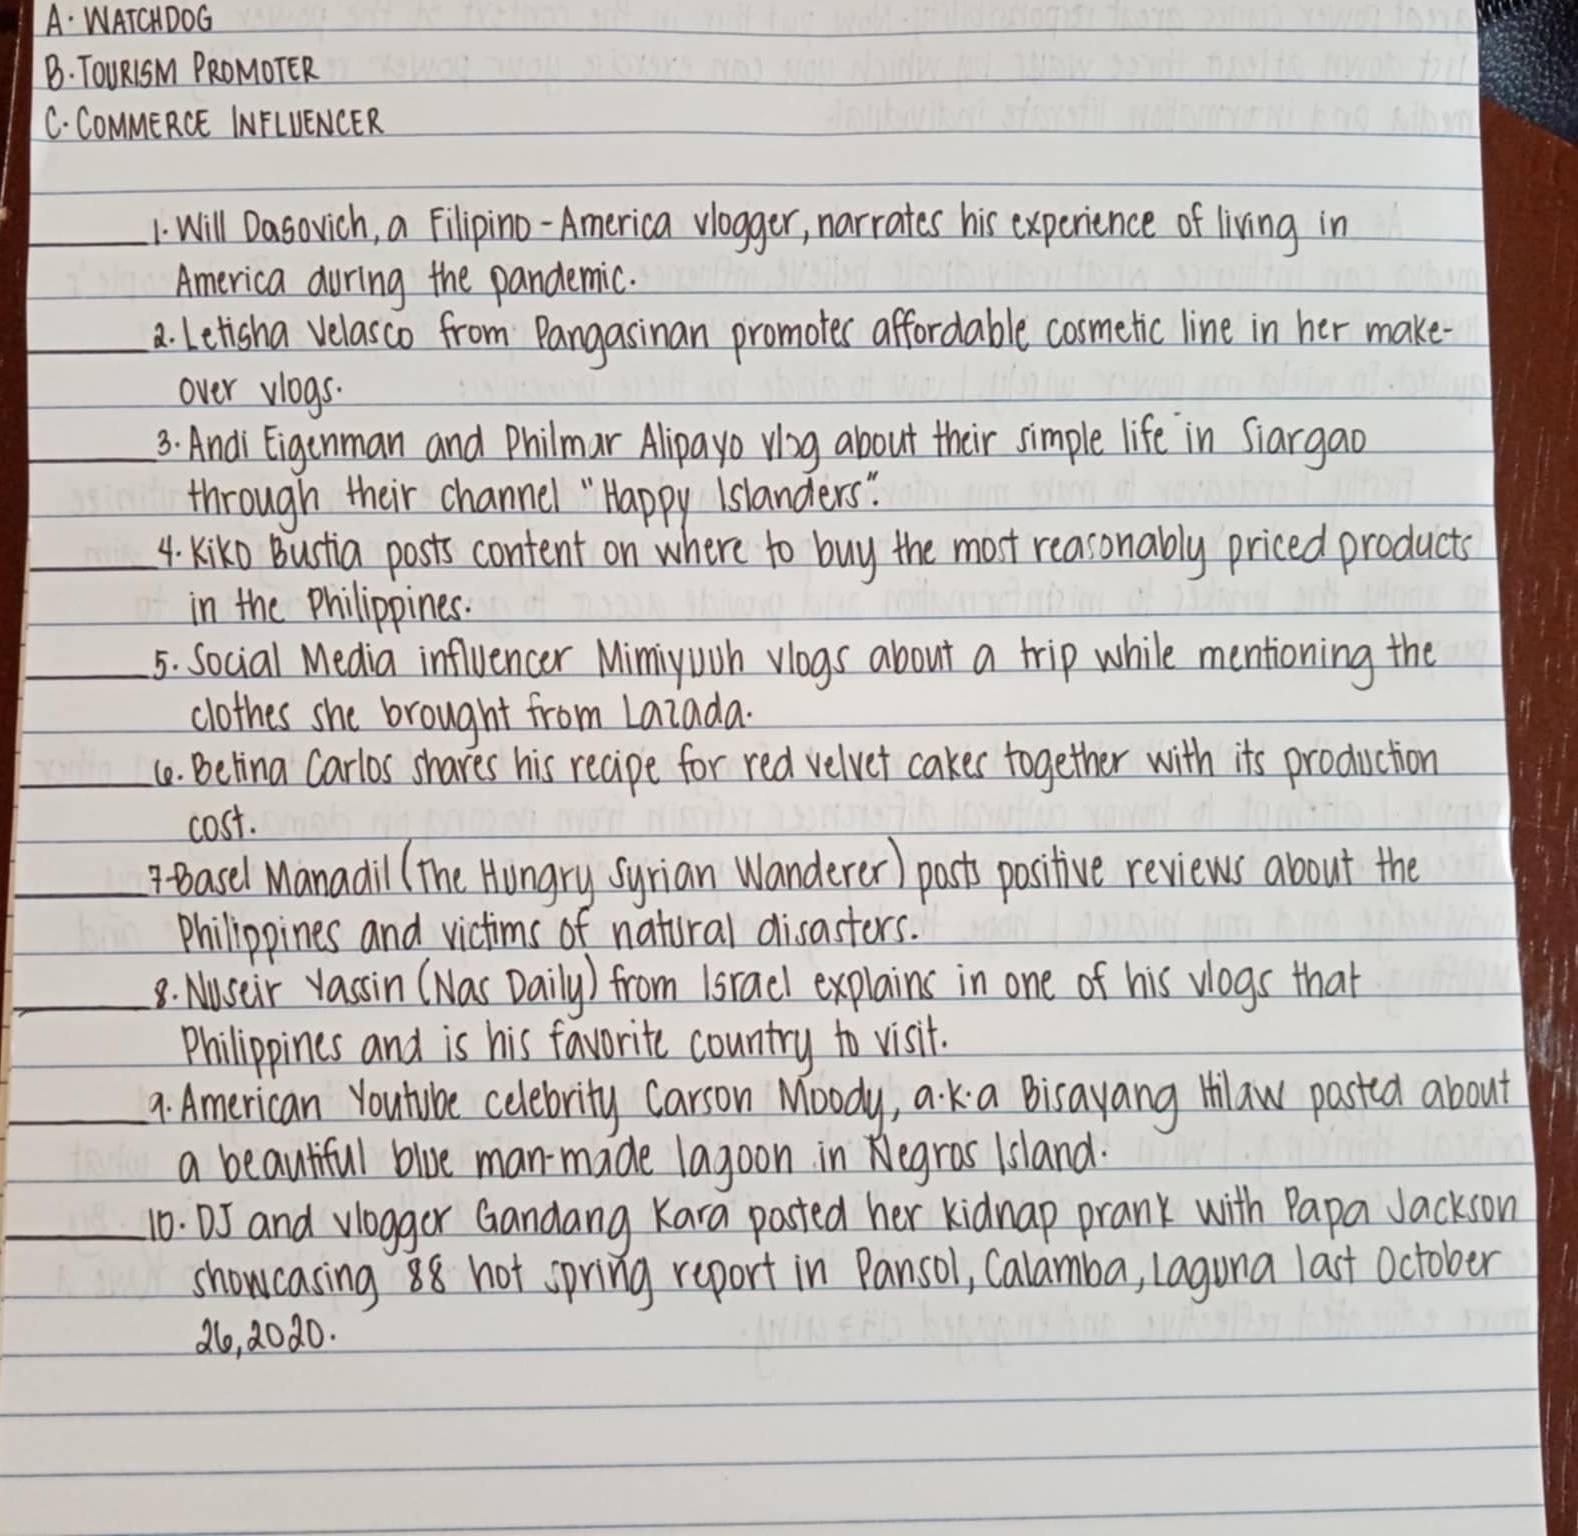 A. WATCHDOG
B. TOURISM PROMOTER
C. COMMERCE INFLUENCER
1. Will Dasovich, a Filipino-America vlogger, narrates his experience of living in
America during the pandemic.
2. Letisha Velasco from Pangasinan promotes affordable cosmetic line in her make-
over vlogs.
3. Andi Eigenman and Philmar Alipayo vlog about their simple life in Siargao
through their channel "Happy Islanders".
4. Kiko Bustia posts content on where to buy the most reasonably priced products
in the Philippines.
5. Social Media influencer Mimiyuuh vlogs about a trip while mentioning the
clothes she brought from Lazada.
6. Betina Carlos shares his recipe for red velvet cakes together with its production
cost.
7. Basel Manadil (The Hungry Syrian Wanderer) posts positive reviews about the
Philippines and victims of natural disasters.
8. Nuseir Yassin (Nas Daily) from Israel explains in one of his vlogs that
Philippines and is his favorite country to visit.
9. American Youtube celebrity Carson Moody, a.k.a Bisayang Hilaw posted about
a beautiful blue man-made lagoon in Negros Island.
10. DJ and vlogger Gandang Kara posted her kidnap prank with Papa Jackson
showcasing 88 hot spring report in Pansol, Calamba, Laguna last October
26, 2020.